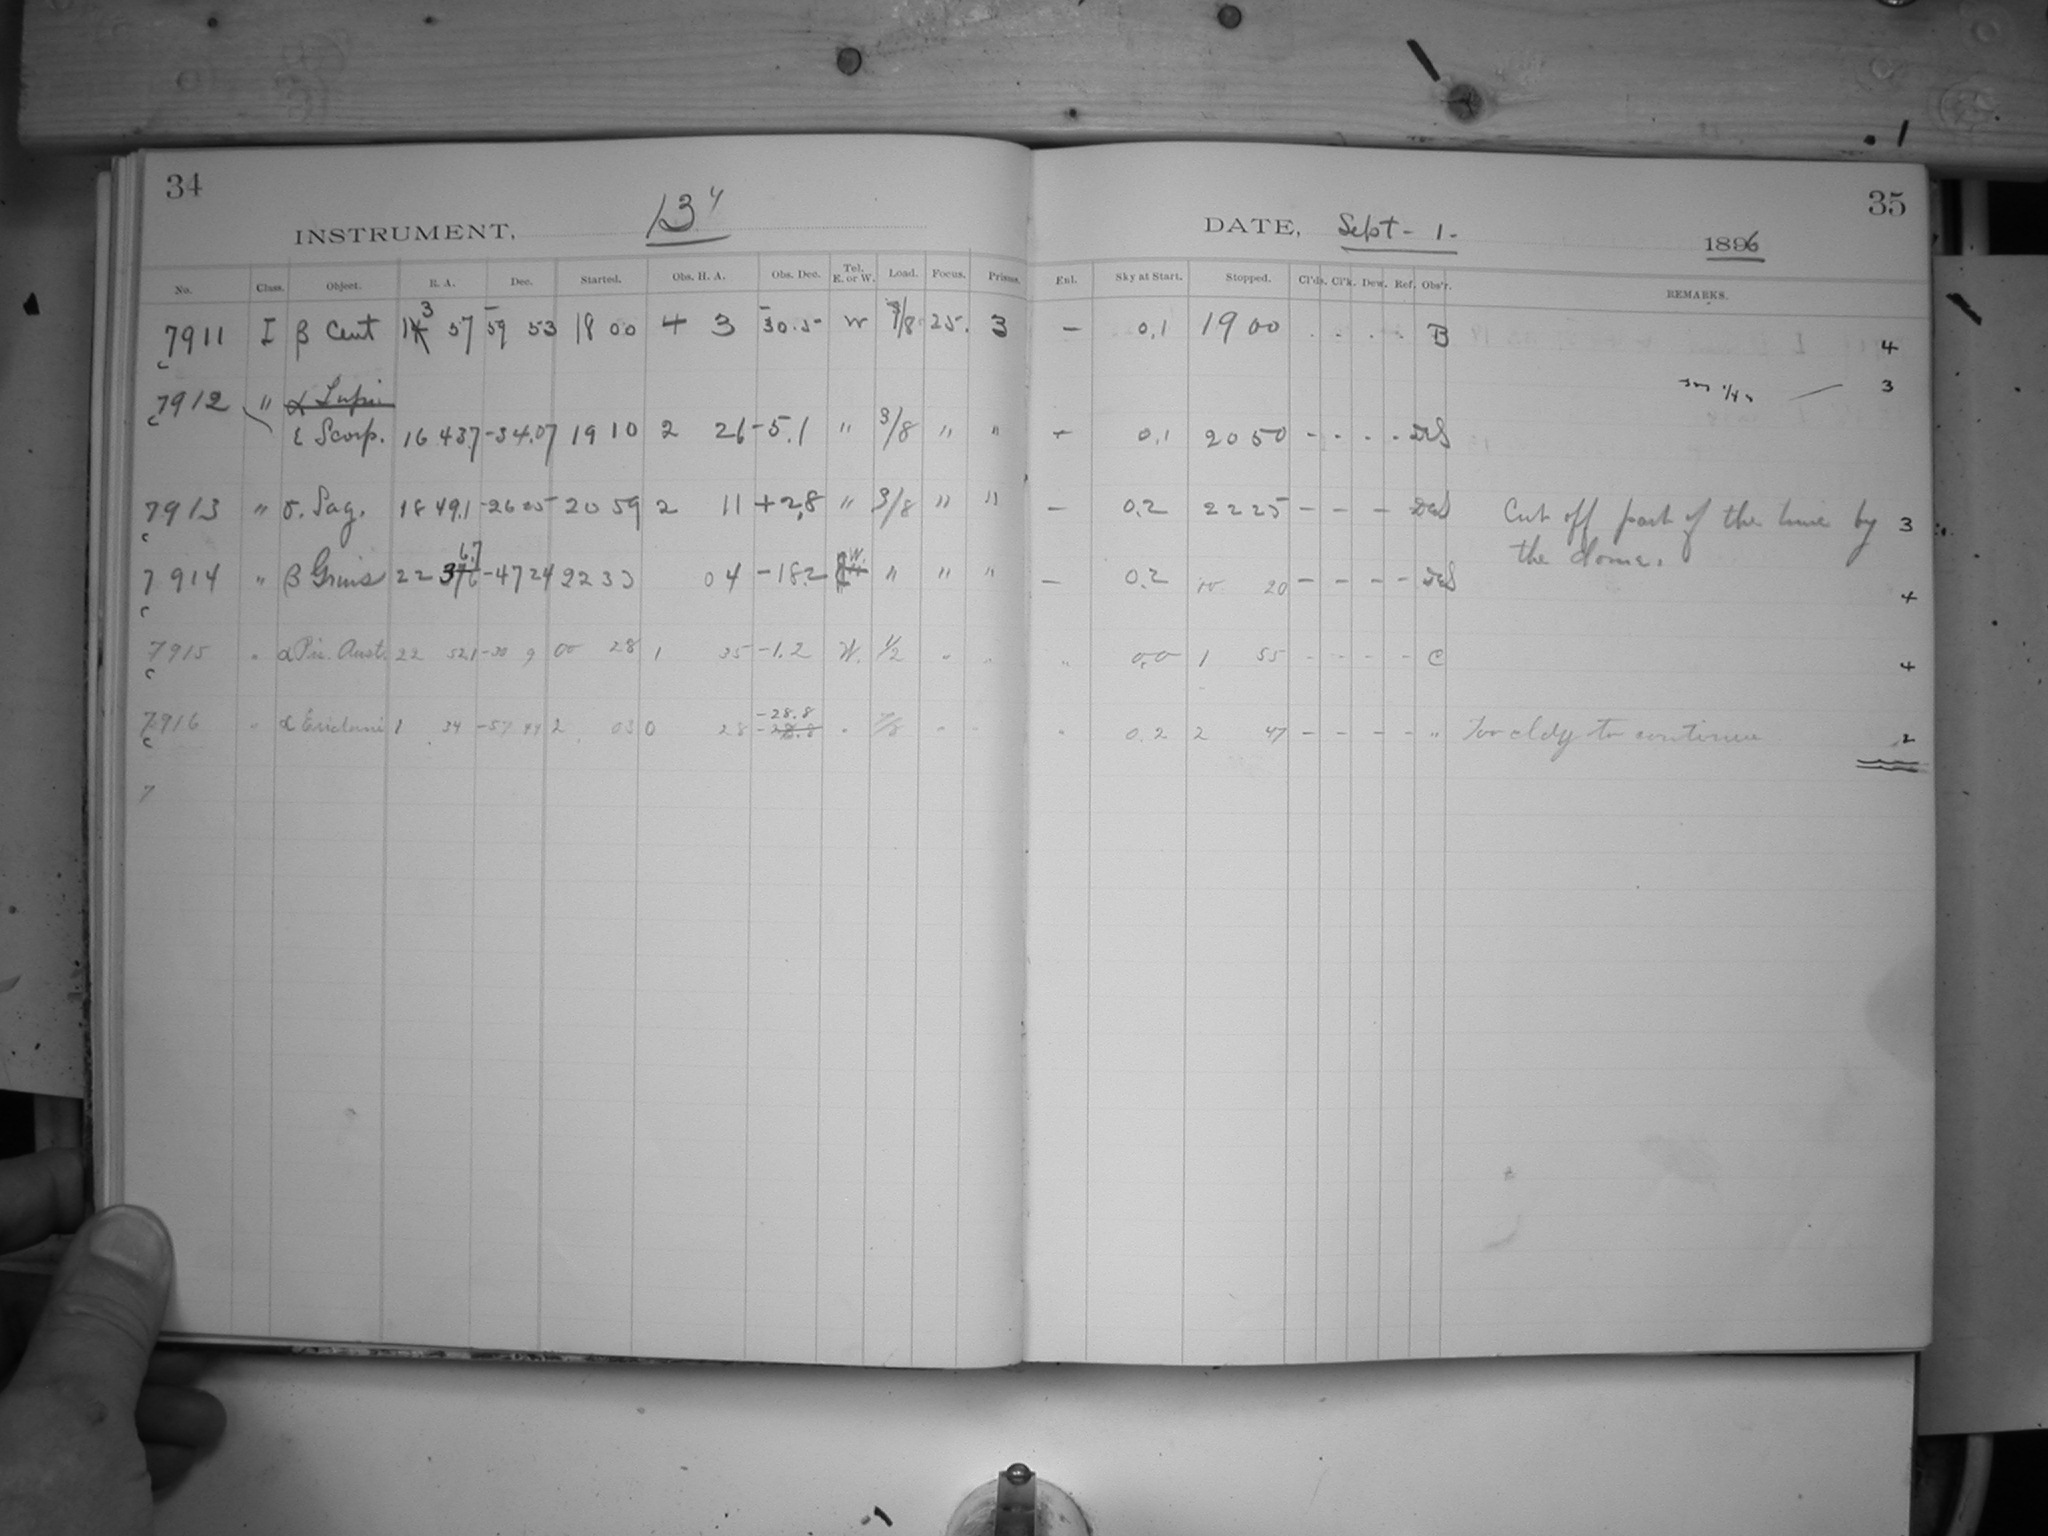 34
INSTRUMENT, 13"
No. Class. Object. R. A. Dec. Started. Obs. H. A. Obs. Dec. Tel. E. or W. Load. Focus. Prisms.
7911 I β Cent 13 57 -59 53 18 00 4 3 -30.5 W 7/8 25. 3
7912 " α Lupi
ε Scorp. 16 43.7 -34.07 19 10 2 26 -5.1 " 3/8 " "
7913 " σ. Sag. 18 49.1 -26 25 20 59 2 11 +2.8 " 3/8 " "
7914 " β Gruis 22 36.7 -47 24 22 33 0 4 -18.2 W. " " "
7915 " α Pis. Aust. 22 52.1 -30 9 00 28 1 35 -1.2 W. 1/2 " "
7916 " α Eridani 1 34 -57 44 2 03 0 28 -28.8 " 7/8 " "
7
35
DATE, Sept - 1 - 1896
Enl. Sky at Start. Stopped. Cl'ds. Cl'k. Dew. Ref. Obs'r. REMARKS.
- 0.1 19 00 . . . . B 4
3
+ 0.1 20 50 - - - - 3
- 0.2 22 25 - - - Cut off part of the time by 3
the dome.
- 0.2 20 - - - - 4
" 0.0 1 55 - - - - C 4
" 0.2 2 47 - - - - " Too cldy to continue 2